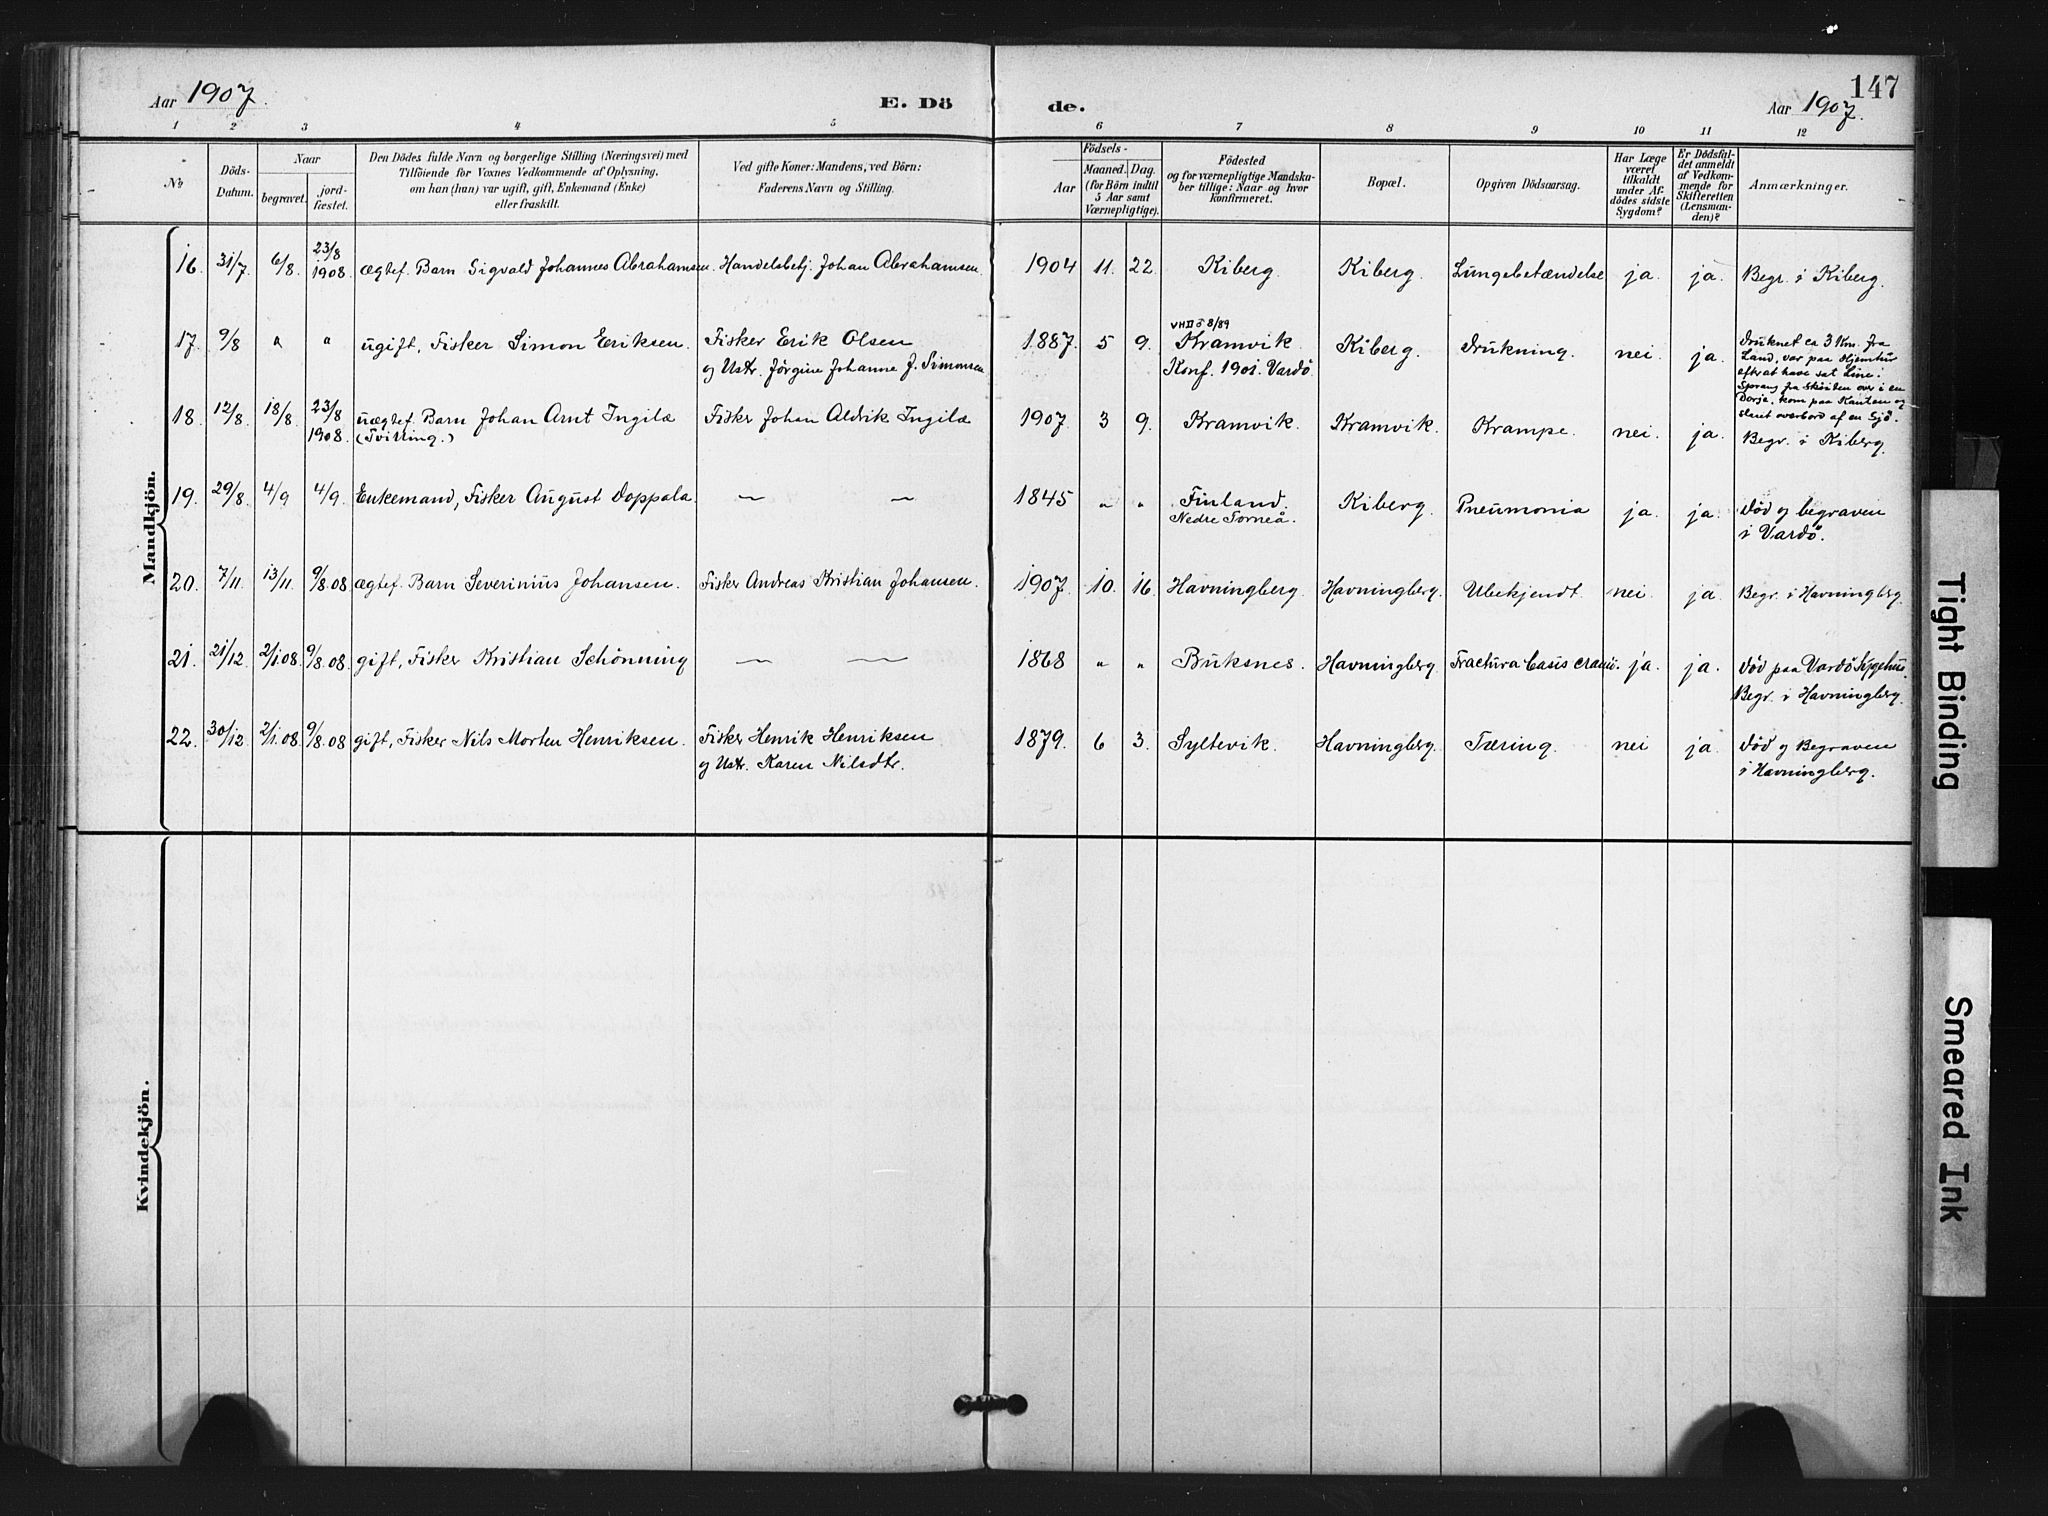 147
Aar 1907. E. Dö de. Aar 1907.
1 2 3 4 5 6 7 8 9 10 11 12
No
Döds-
Datum.
Naar
begravet.
jord-
fæstet.
Den Dödes fulde Navn og borgerlige Stilling (Næringsvei) med
Tilföiende för Voxnes Vedkommende af Oplysning,
om han (hun) var ugift, gift, Enkemand (Enke)
eller fraskilt.
Ved gifte Koner: Mandens, ved Börn:
Faderens Navn og Stilling.
Födsels-
Aar
Maaned. Dag.
(for Börn indtil
5 Aar samt
Værnepligtige).
Födested
og for værnepligtige Mandska-
ber tillige: Naar og hvor
konfirmeret.
Bopæl.
Opgiven Dödsaarsag.
Har Læge
været
tilkaldt
under Af-
dödes sidste
Sygdom?
Er Dödsfal-
det anmeldt
af Vedkom-
mende for
Skifteretten
(Lensman-
den)?
Anmærkninger.
Mandkjön.
23/8
16. 31/7. 6/8. 1908. ægtef. Barn Sigvald Johannes Abrahamsen. Handelsbetj. Johan Abrahamsen. 1904 11. 22. Kiberg. Kiberg. Lungebetændelse ja ja. Begr. i Kiberg.
VHII ö 8/89
17. 9/8 " " ugift, Fisker Simon Eriksen. Fisker Erik Olsen 1887. 5 9. Kramvik. Kiberg. Drukning. nei. ja.
og Ustr. Jørgine Johanne J. Simonsen Konf. 1901. Vardö.
Druknet ca 3 Km. fra
Land, var paa Hjemtur
efter at have sat Line:
Sprang fra Sköiten over i en
Dorja, kom paa Kanten og
slaat overbord af en Sjö.
18. 12/8. 18/8. 23/8 uægtef. Barn Johan Arnt Ingilæ Fisker Johan Aldrik Ingilæ 1907. 3 9. Kramvik. Kramvik. Krampe. nei. ja. Begr. i Kiberg.
1908. (Tvilling.)
19. 29/8. 4/9 4/9. Enkemand, Fisker August Doppala. — — 1845 " " Finland. Kiberg. Pneumonia ja. ja. Död og begraven
Nedre Torneå. i Vardö.
20. 7/11. 13/11. 9/8.08 ægtef. Barn Severinius Johansen. Fisker Andreas Kristian Johansen. 1907. 10. 16. Havningberg. Havningberg. Ubekjendt. nei. ja. Begr. i Havningberg.
21. 21/12 2/1.08. 9/8.08. gift, Fisker Kristian Schönning — — 1868 " " Buksnes. Havningberg. Fractura basis cranii. ja. ja. Död paa Vardö Sygehus.
Begr. i Havningberg.
22. 30/12. 2/1.08. 9/8.08 gift, Fisker Nils Morten Henriksen. Fisker Henrik Henriksen 1879. 6 3. Syltevik. Havningberg. Tæring. nei ja. Död og Begraven
og Ustr. Karen Nilsdtr. i Havningberg.
Kvindekjön.
Tight Binding
Smeared Ink